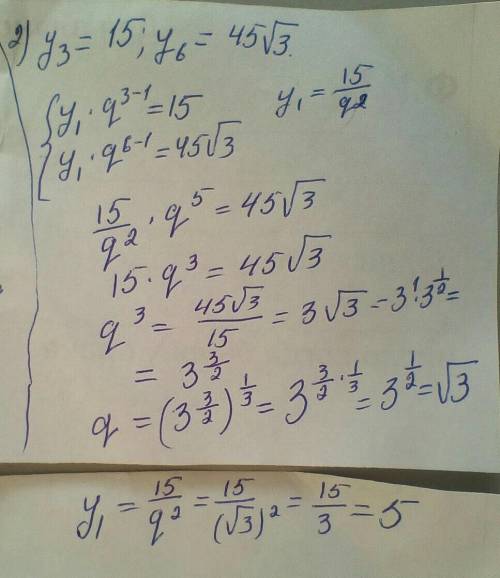 2) y₃ = 15; y₆ = 45√3.
{ y₁ · q³⁻¹ = 15    y₁ = 15/q²
{ y₁ · q⁶⁻¹ = 45√3
15/q² · q⁵ = 45√3
15 · q³ = 45√3
q³ = 45√3/15 = 3√3 = 3¹·3^(1/2) =
= 3^(3/2)
q = (3^(3/2))^(1/3) = 3^(3/2 · 1/3) = 3^(1/2) = √3
y₁ = 15/q² = 15/(√3)² = 15/3 = 5